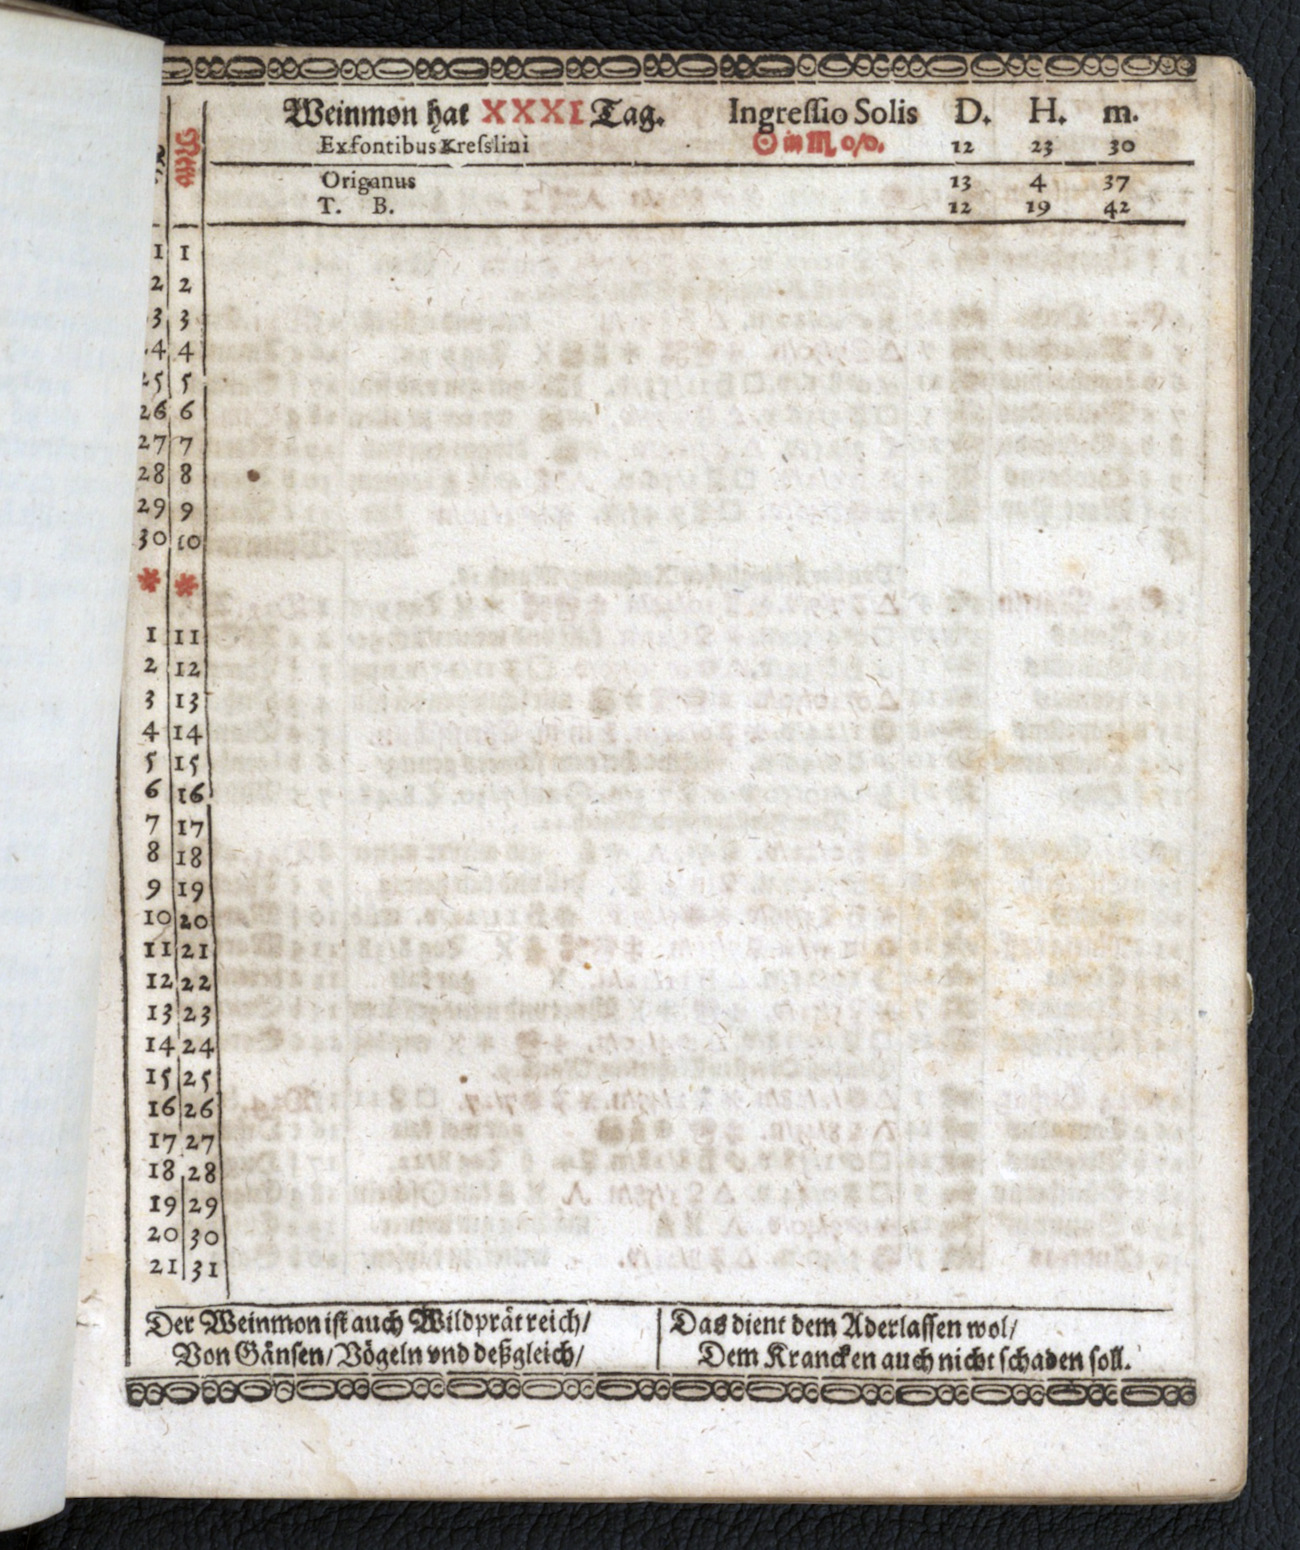 Weinmon hat XXXI Tag. Ingressio Solis D. H. m.
Ex fontibus Kresslini ☉ in ♏ 0/0. 12 23 30
New
Origanus 13 4 37
T. B. 12 19 42
1 1
2 2
3 3
4 4
25 5
26 6
27 7
28 8
29 9
30 10
* *
1 11
2 12
3 13
4 14
5 15
6 16
7 17
8 18
9 19
10 20
11 21
12 22
13 23
14 24
15 25
16 26
17 27
18 28
19 29
20 30
21 31
Der Weinmon ist auch Wildprät reich/
Von Gänsen/ Vögeln vnd deßgleich/
Das dient dem Aderlassen wol/
Dem Krancken auch nicht schaden soll.